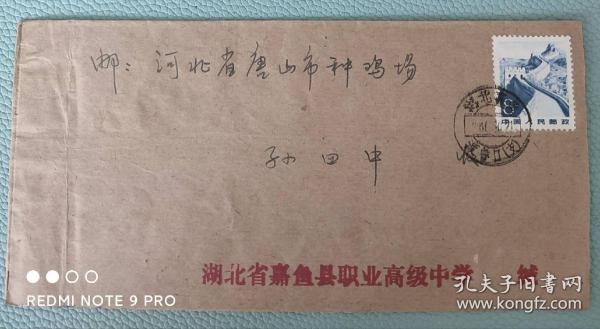 邮：河北省唐山市种鸡场
8
中国人民邮政
孙田中 收
湖北省嘉鱼县职业高级中学 缄
REDMI NOTE 9 PRO
孔夫子旧书网
www.kongfz.com